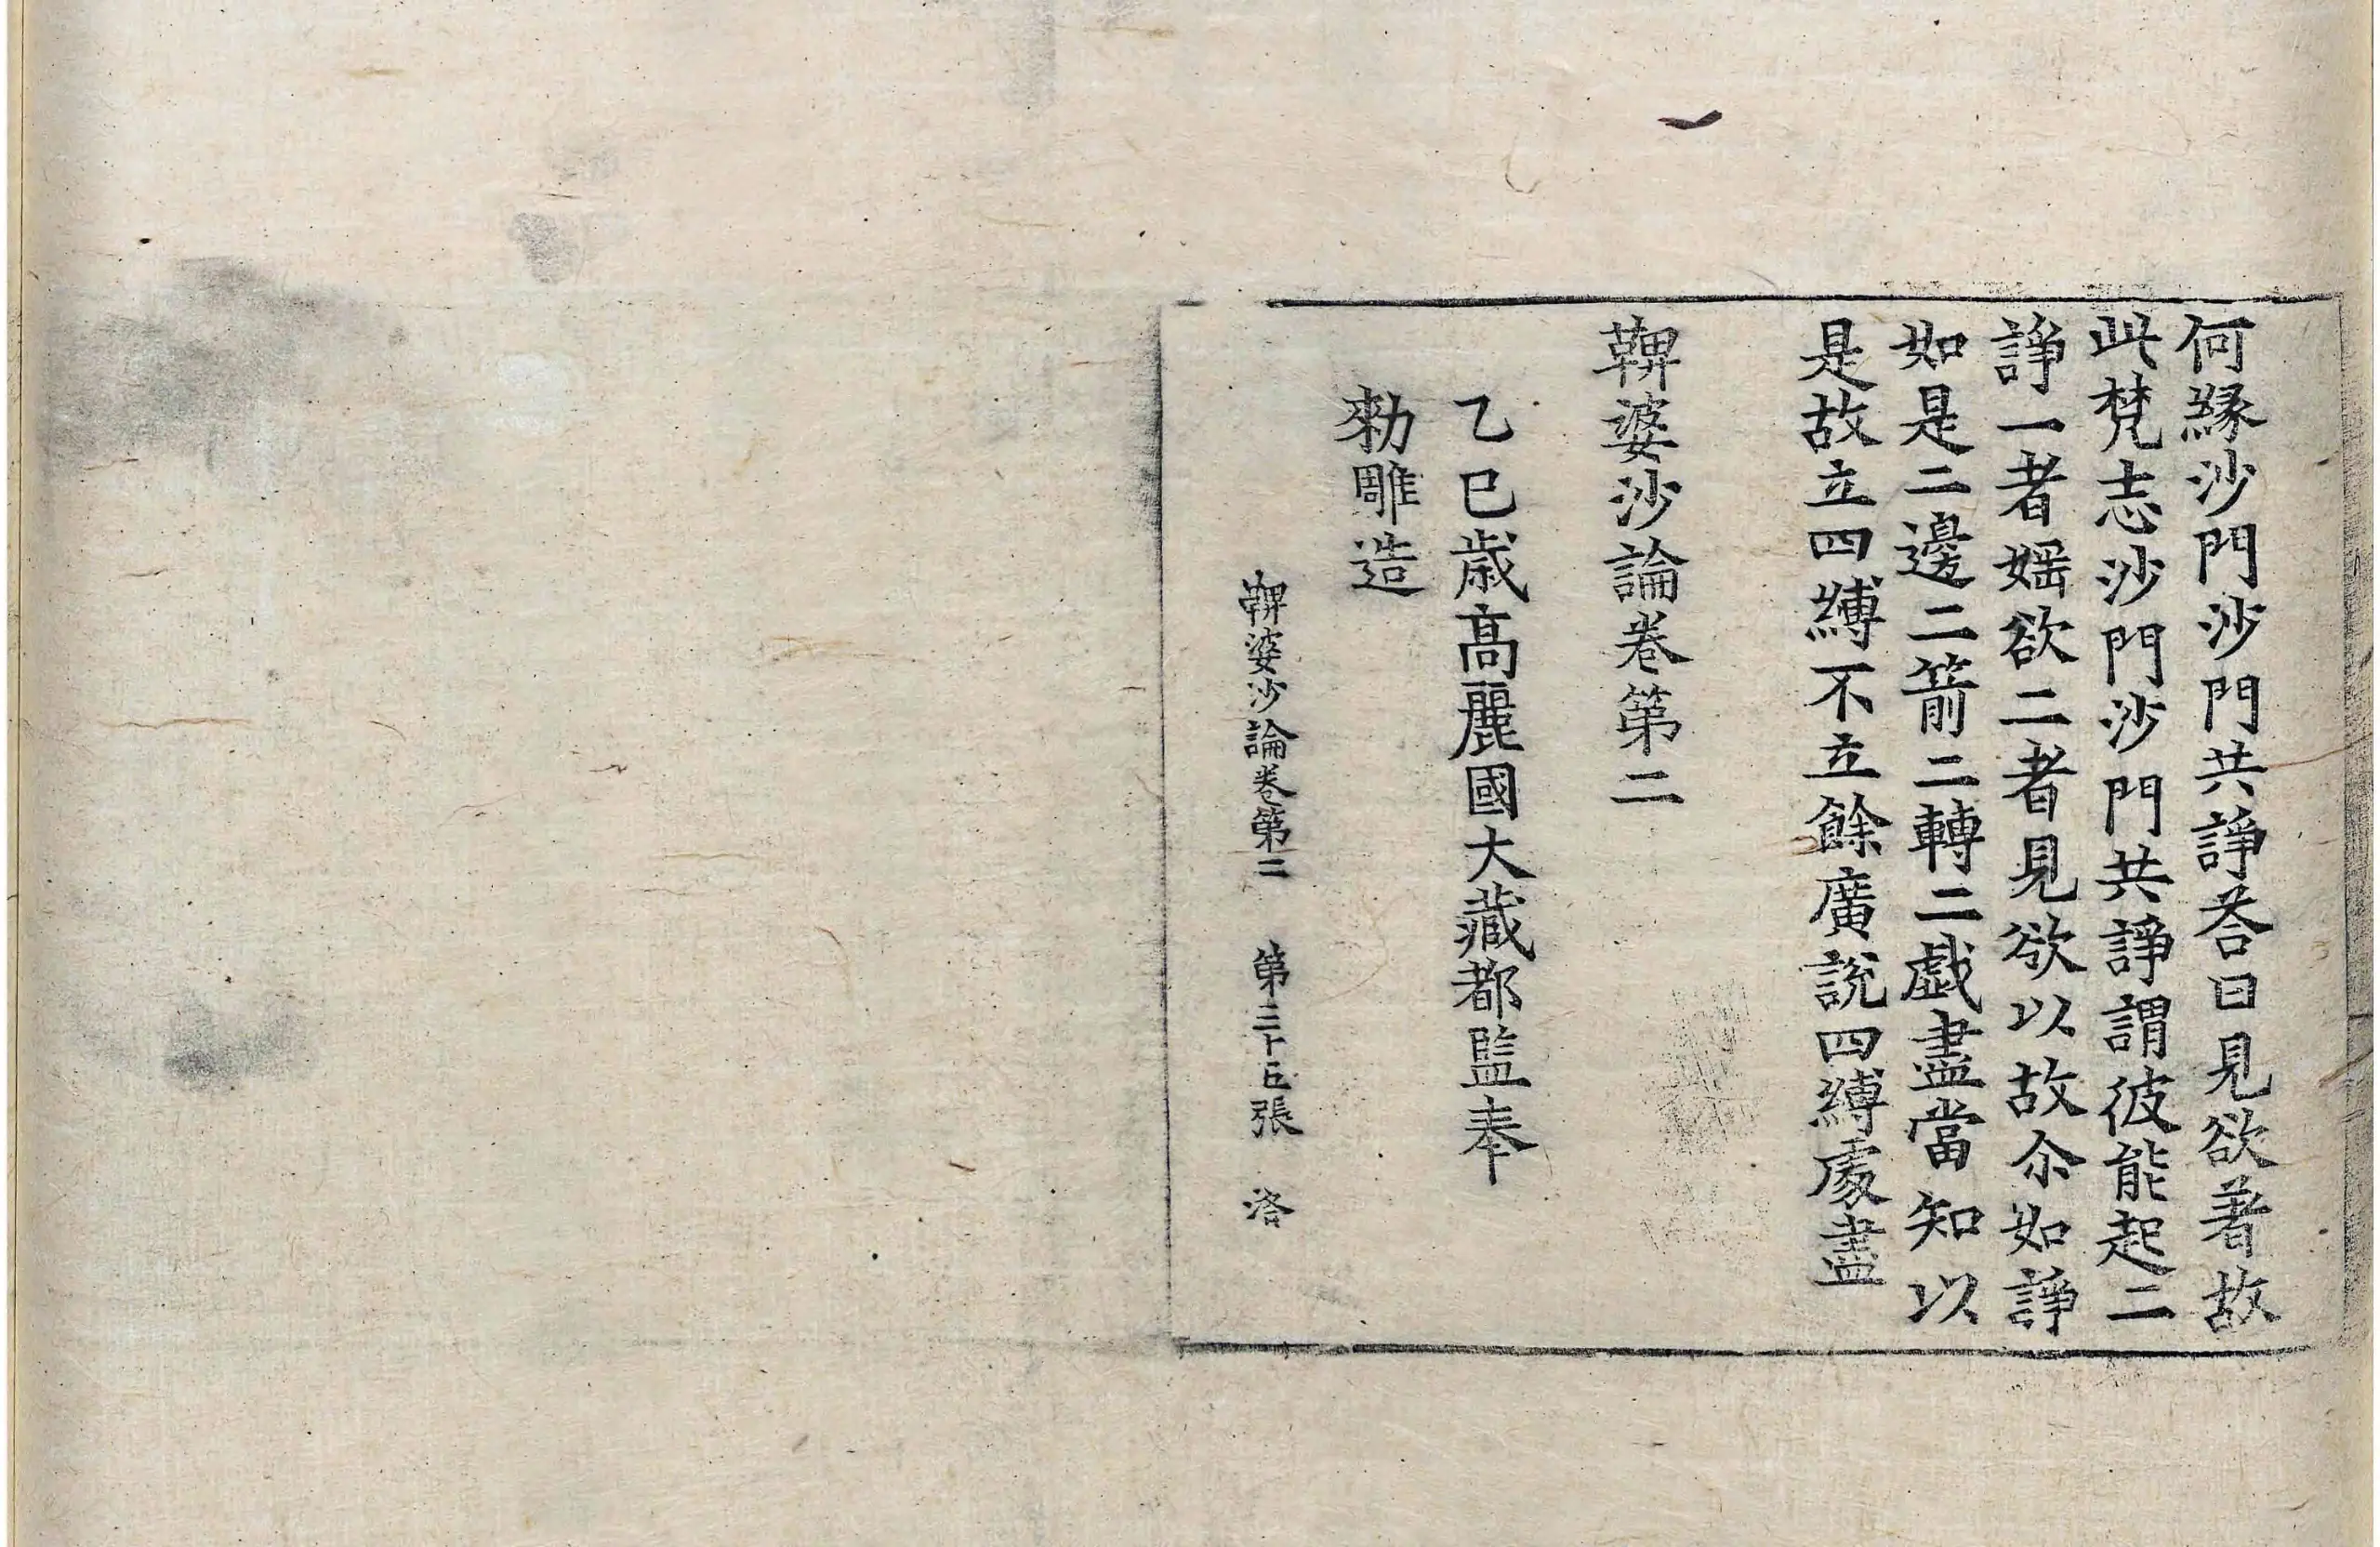 何緣沙門沙門共諍荅曰見欲著故
此梵志沙門沙門共諍謂彼能起二
諍一者婬欲二者見欲以故尒如諍
如是二邊二箭二轉二戱盡當知以
是故立四縛不立餘廣說四縛處盡
鞞婆沙論卷第二
乙巳歲高麗國大藏都監奉
勑雕造
鞞婆沙論卷第二 第三十 張 洛